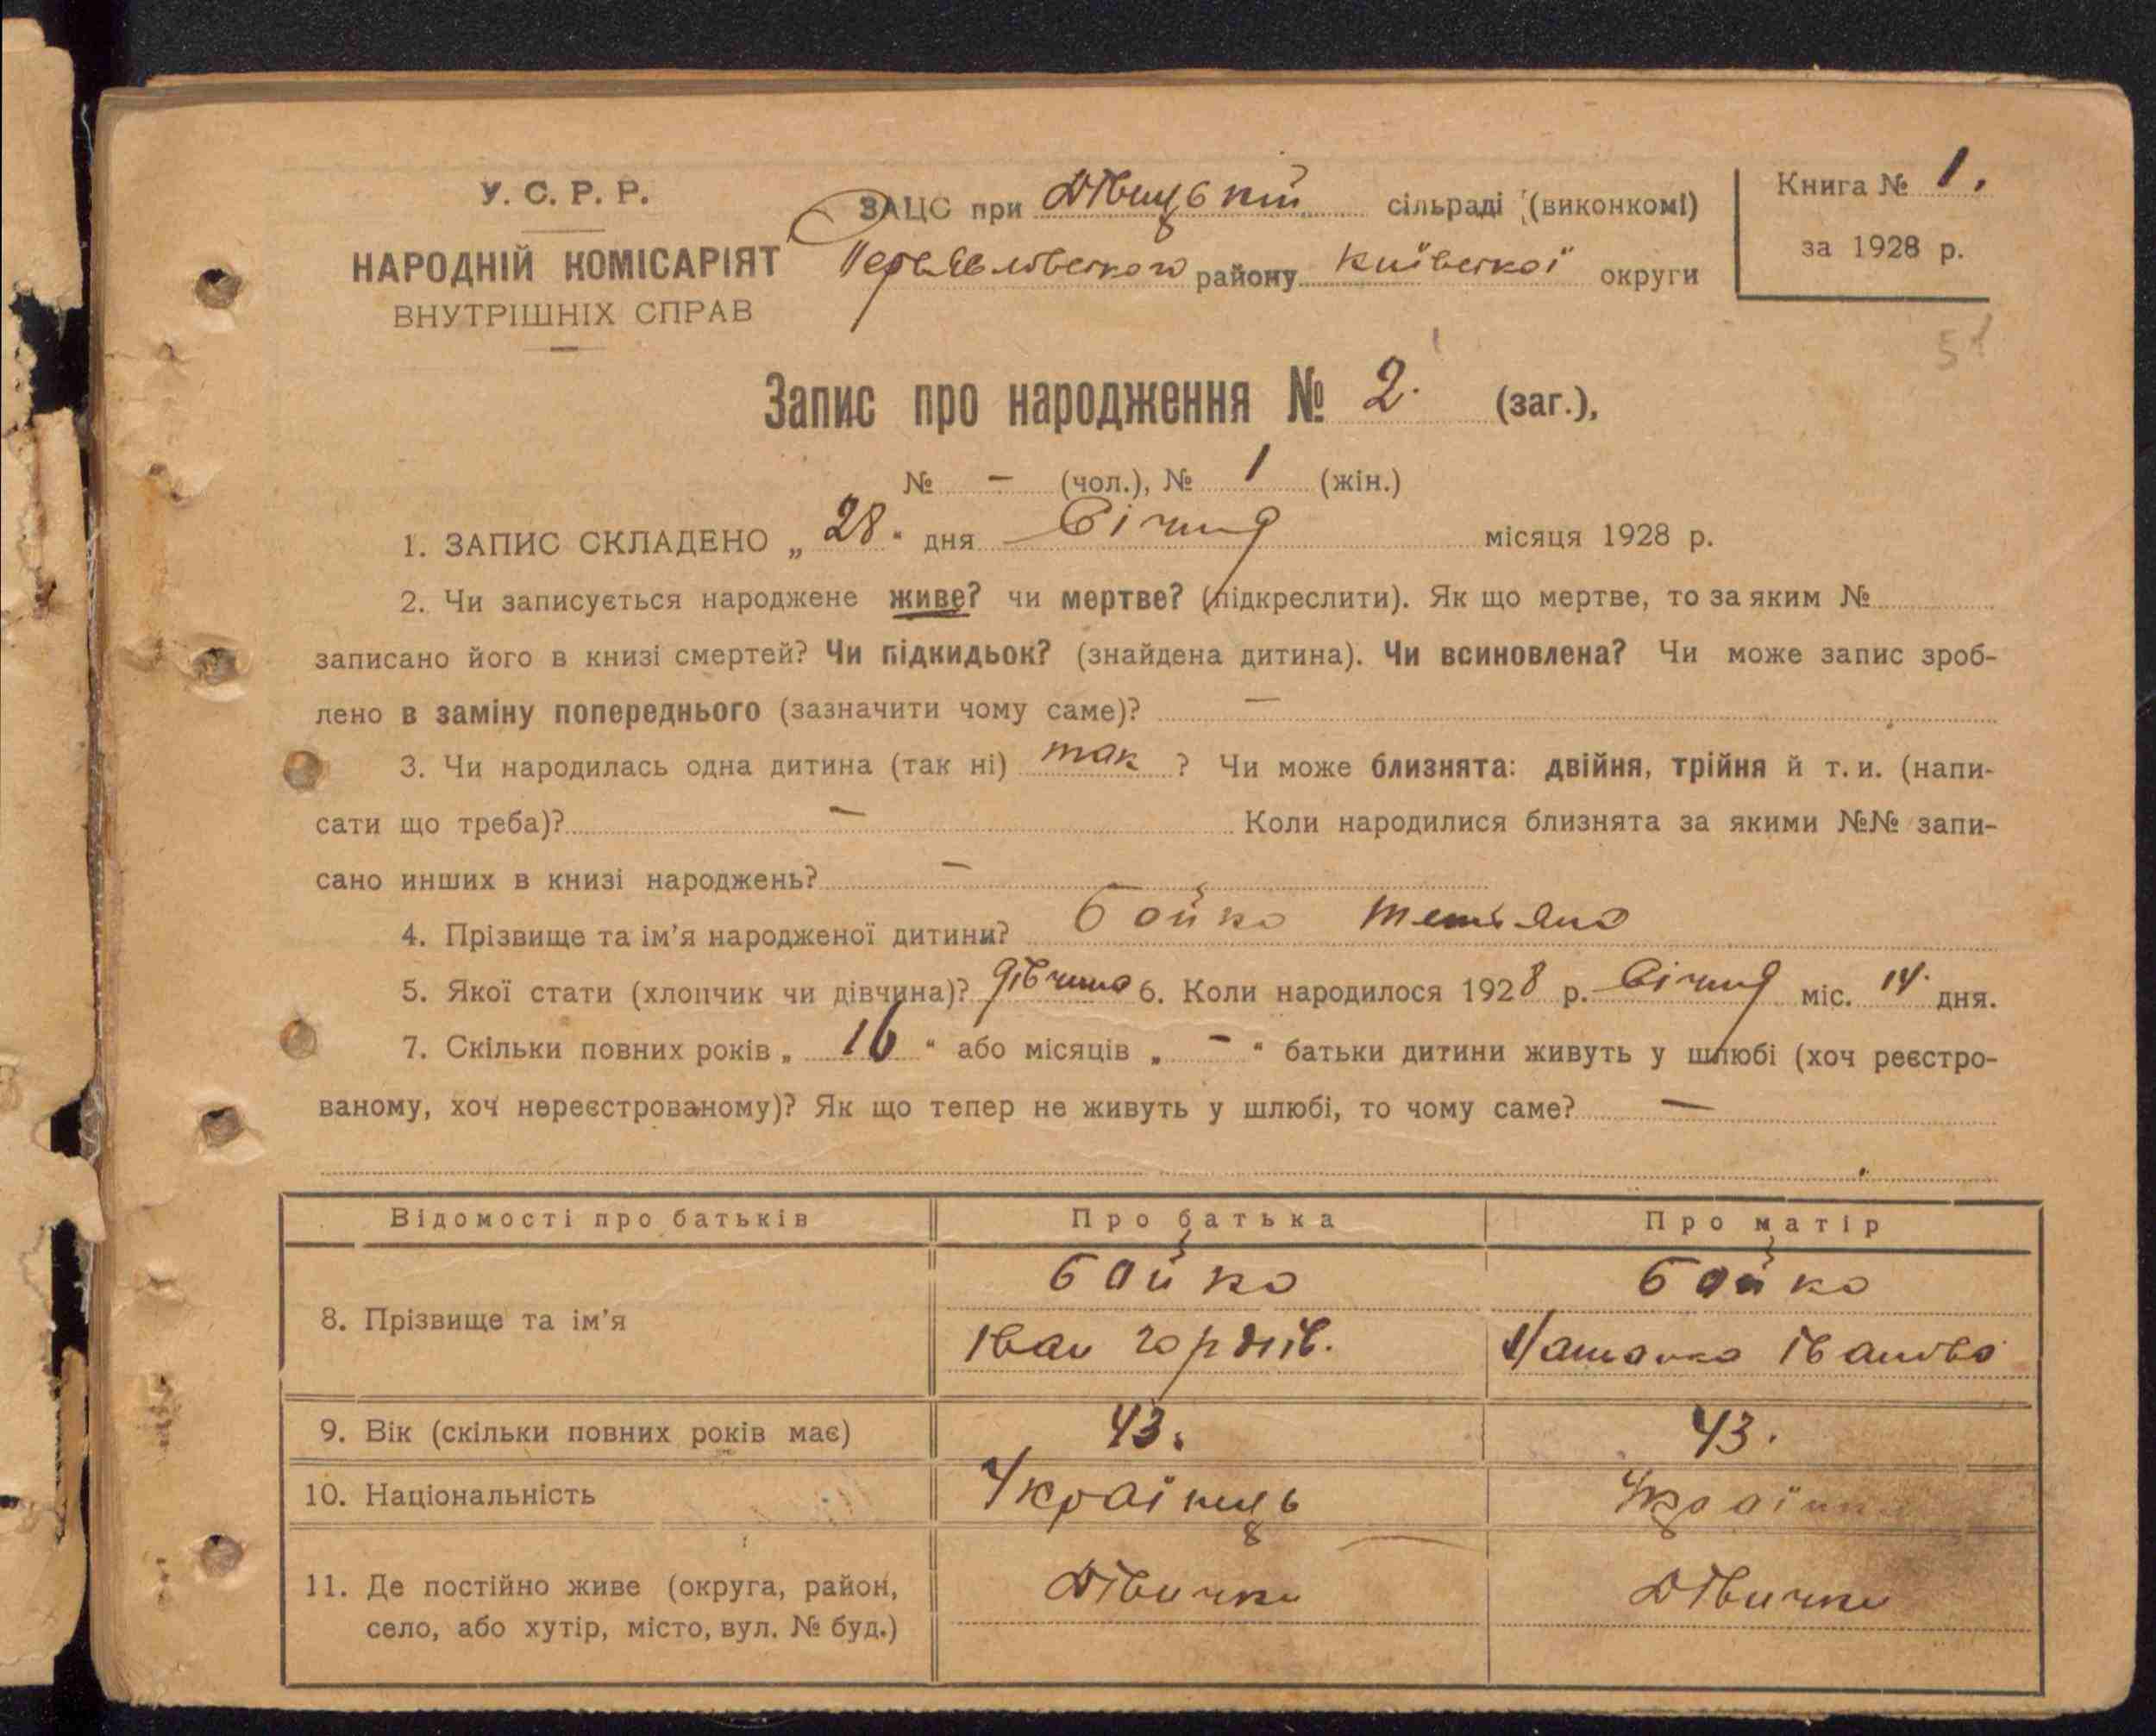 У. С. Р. Р.
НАРОДНІЙ КОМІСАРІЯТ
ВНУТРІШНІХ СПРАВ
ЗАЦС при Дівицькій сільраді (виконкомі)
району Київської округи
Книга № 1.
за 1928 р.
51
Запис про народження № 2. (заг.),
№ – (чол.), № 1 (жін.)
1. ЗАПИС СКЛАДЕНО „28“ дня Січня місяця 1928 р.
2. Чи записується народжене живе? чи мертве? (підкреслити). Як що мертве, то за яким №
записано його в книзі смертей? Чи підкидьок? (знайдена дитина). Чи всиновлена? Чи може запис зроб-
лено в заміну попереднього (зазначити чому саме)? —
3. Чи народилась одна дитина (так ні) так ? Чи може близнята: двійня, трійня й т. и. (напи-
сати що треба)? — Коли народилися близнята за якими №№ запи-
сано инших в книзі народжень? —
4. Прізвище та ім’я народженої дитини? Бойко Тетьяна
5. Якої стати (хлопчик чи дівчина)? дівчина 6. Коли народилося 1928 р. Січня міс. 14. дня.
7. Скільки повних років „ 16 “ або місяців „ – “ батьки дитини живуть у шлюбі (хоч реєстро-
ваному, хоч нереєстрованому)? Як що тепер не живуть у шлюбі, то чому саме? —
Відомості про батьків Про батька Про матір
8. Прізвище та ім’я
Бойко Бойко
Іван Гордіїв. Іванова
9. Вік (скільки повних років має) 43. 43.
10. Національність Українець Українка
11. Де постійно живе (округа, район,
село, або хутір, місто, вул. № буд.)
Дівички Дівички